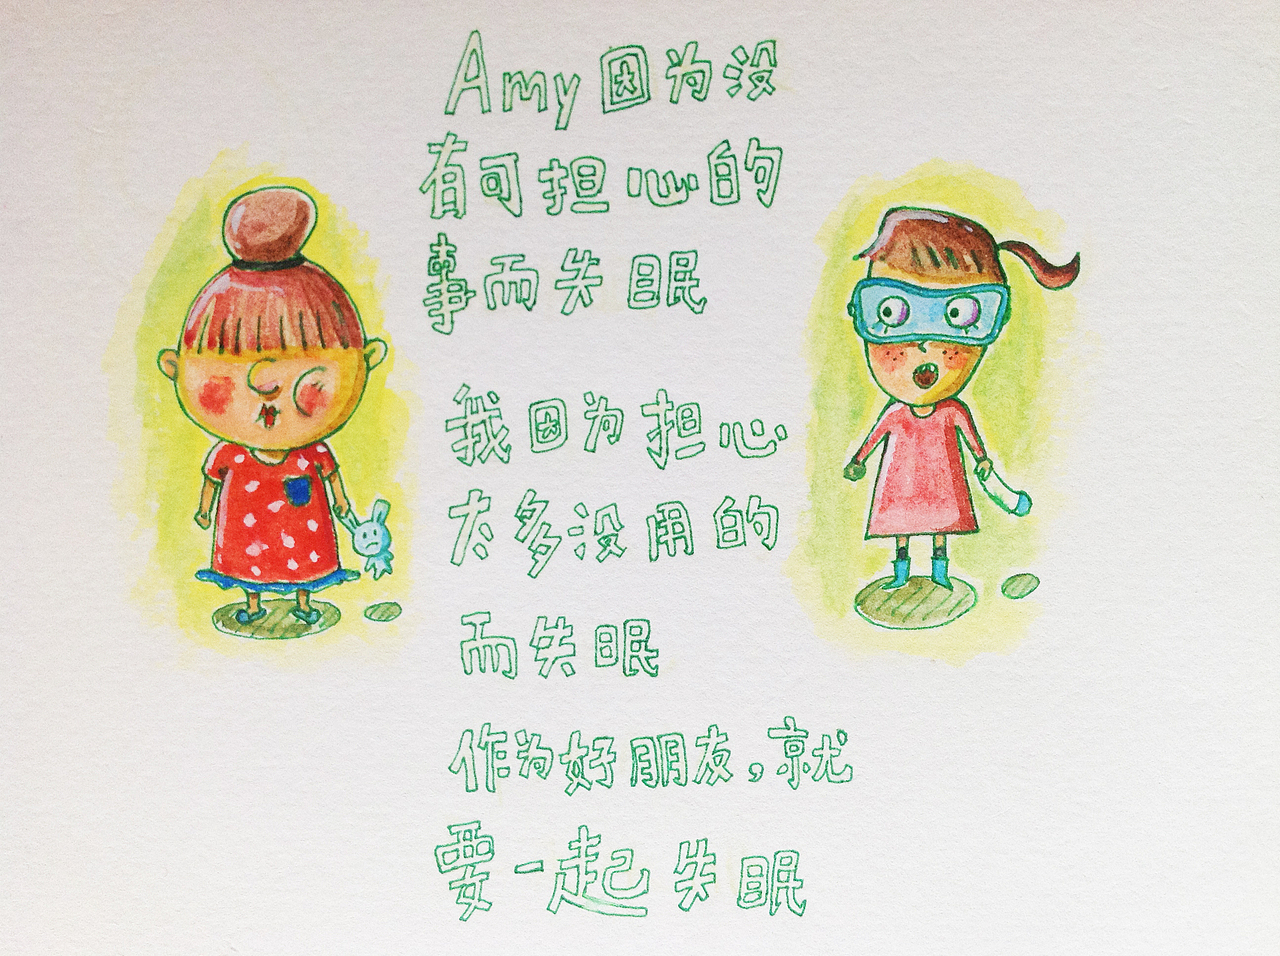 Amy因为没
有可担心的
事而失眠
我因为担心
太多没用的
而失眠
作为好朋友,就
要一起失眠